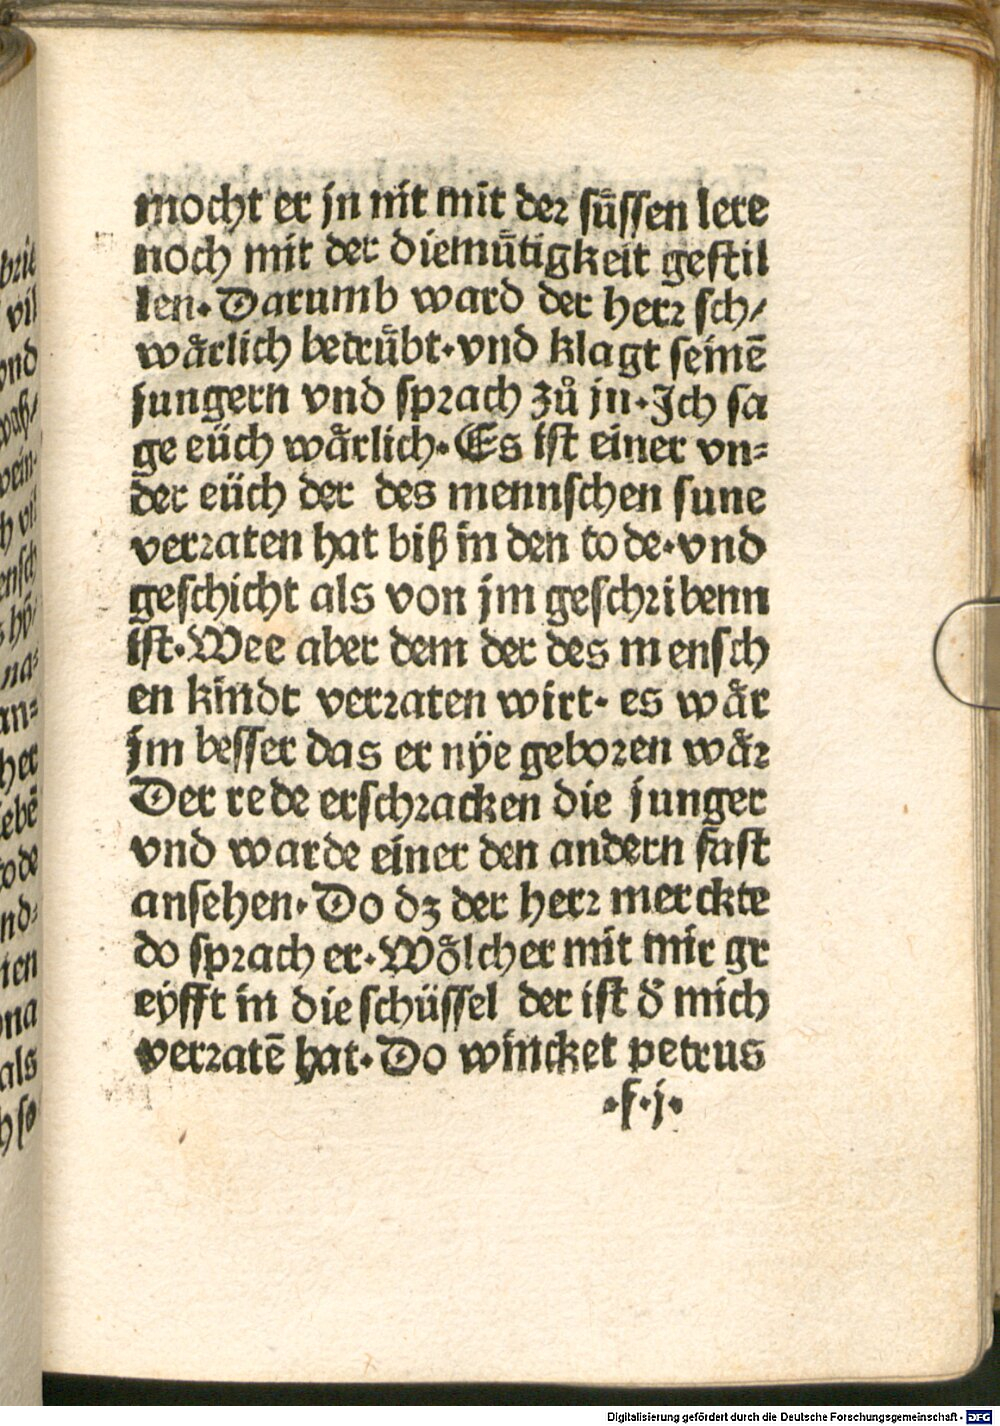 mocht er jn nit mit der suͤssen lere
noch mit der diemuͤtigkeit gestil
len·Darumb ward der herr sch/
waͤrlich betruͤbt·vnd klagt seinē
jungern vnd sprach zů jn·Jch sa
ge eüch waͤrlich·Es ist einer vn⸗
der eüch der des mennschen sune
verraten hat biß in den to de·vnd
geschicht als von jm geschribenn
ist·Wee aber dem der des mensch
en kindt verraten wirt· es waͤr
jm besser das er nÿe geboren waͤr
Der rede erschracken die junger
vnd warde einer den andern fast
ansehen·Do dz der herr merckte
do sprach er·Woͤlcher mit mir gr
eyfft in die schüssel der ist d̕ mich
verratē hat·Do wincket petrus
·f·j·
brie
vil
vnd
wah/
h vil
na⸗
an⸗
her
to de
nd⸗
ien
ona
als
h so
Digitalisierung gefördert durch die Deutsche Forschungsgemeinschaft - DFG